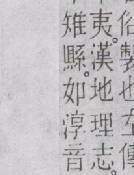 俗製也左傳
夷。漢地理志。
雉縣。如淳音